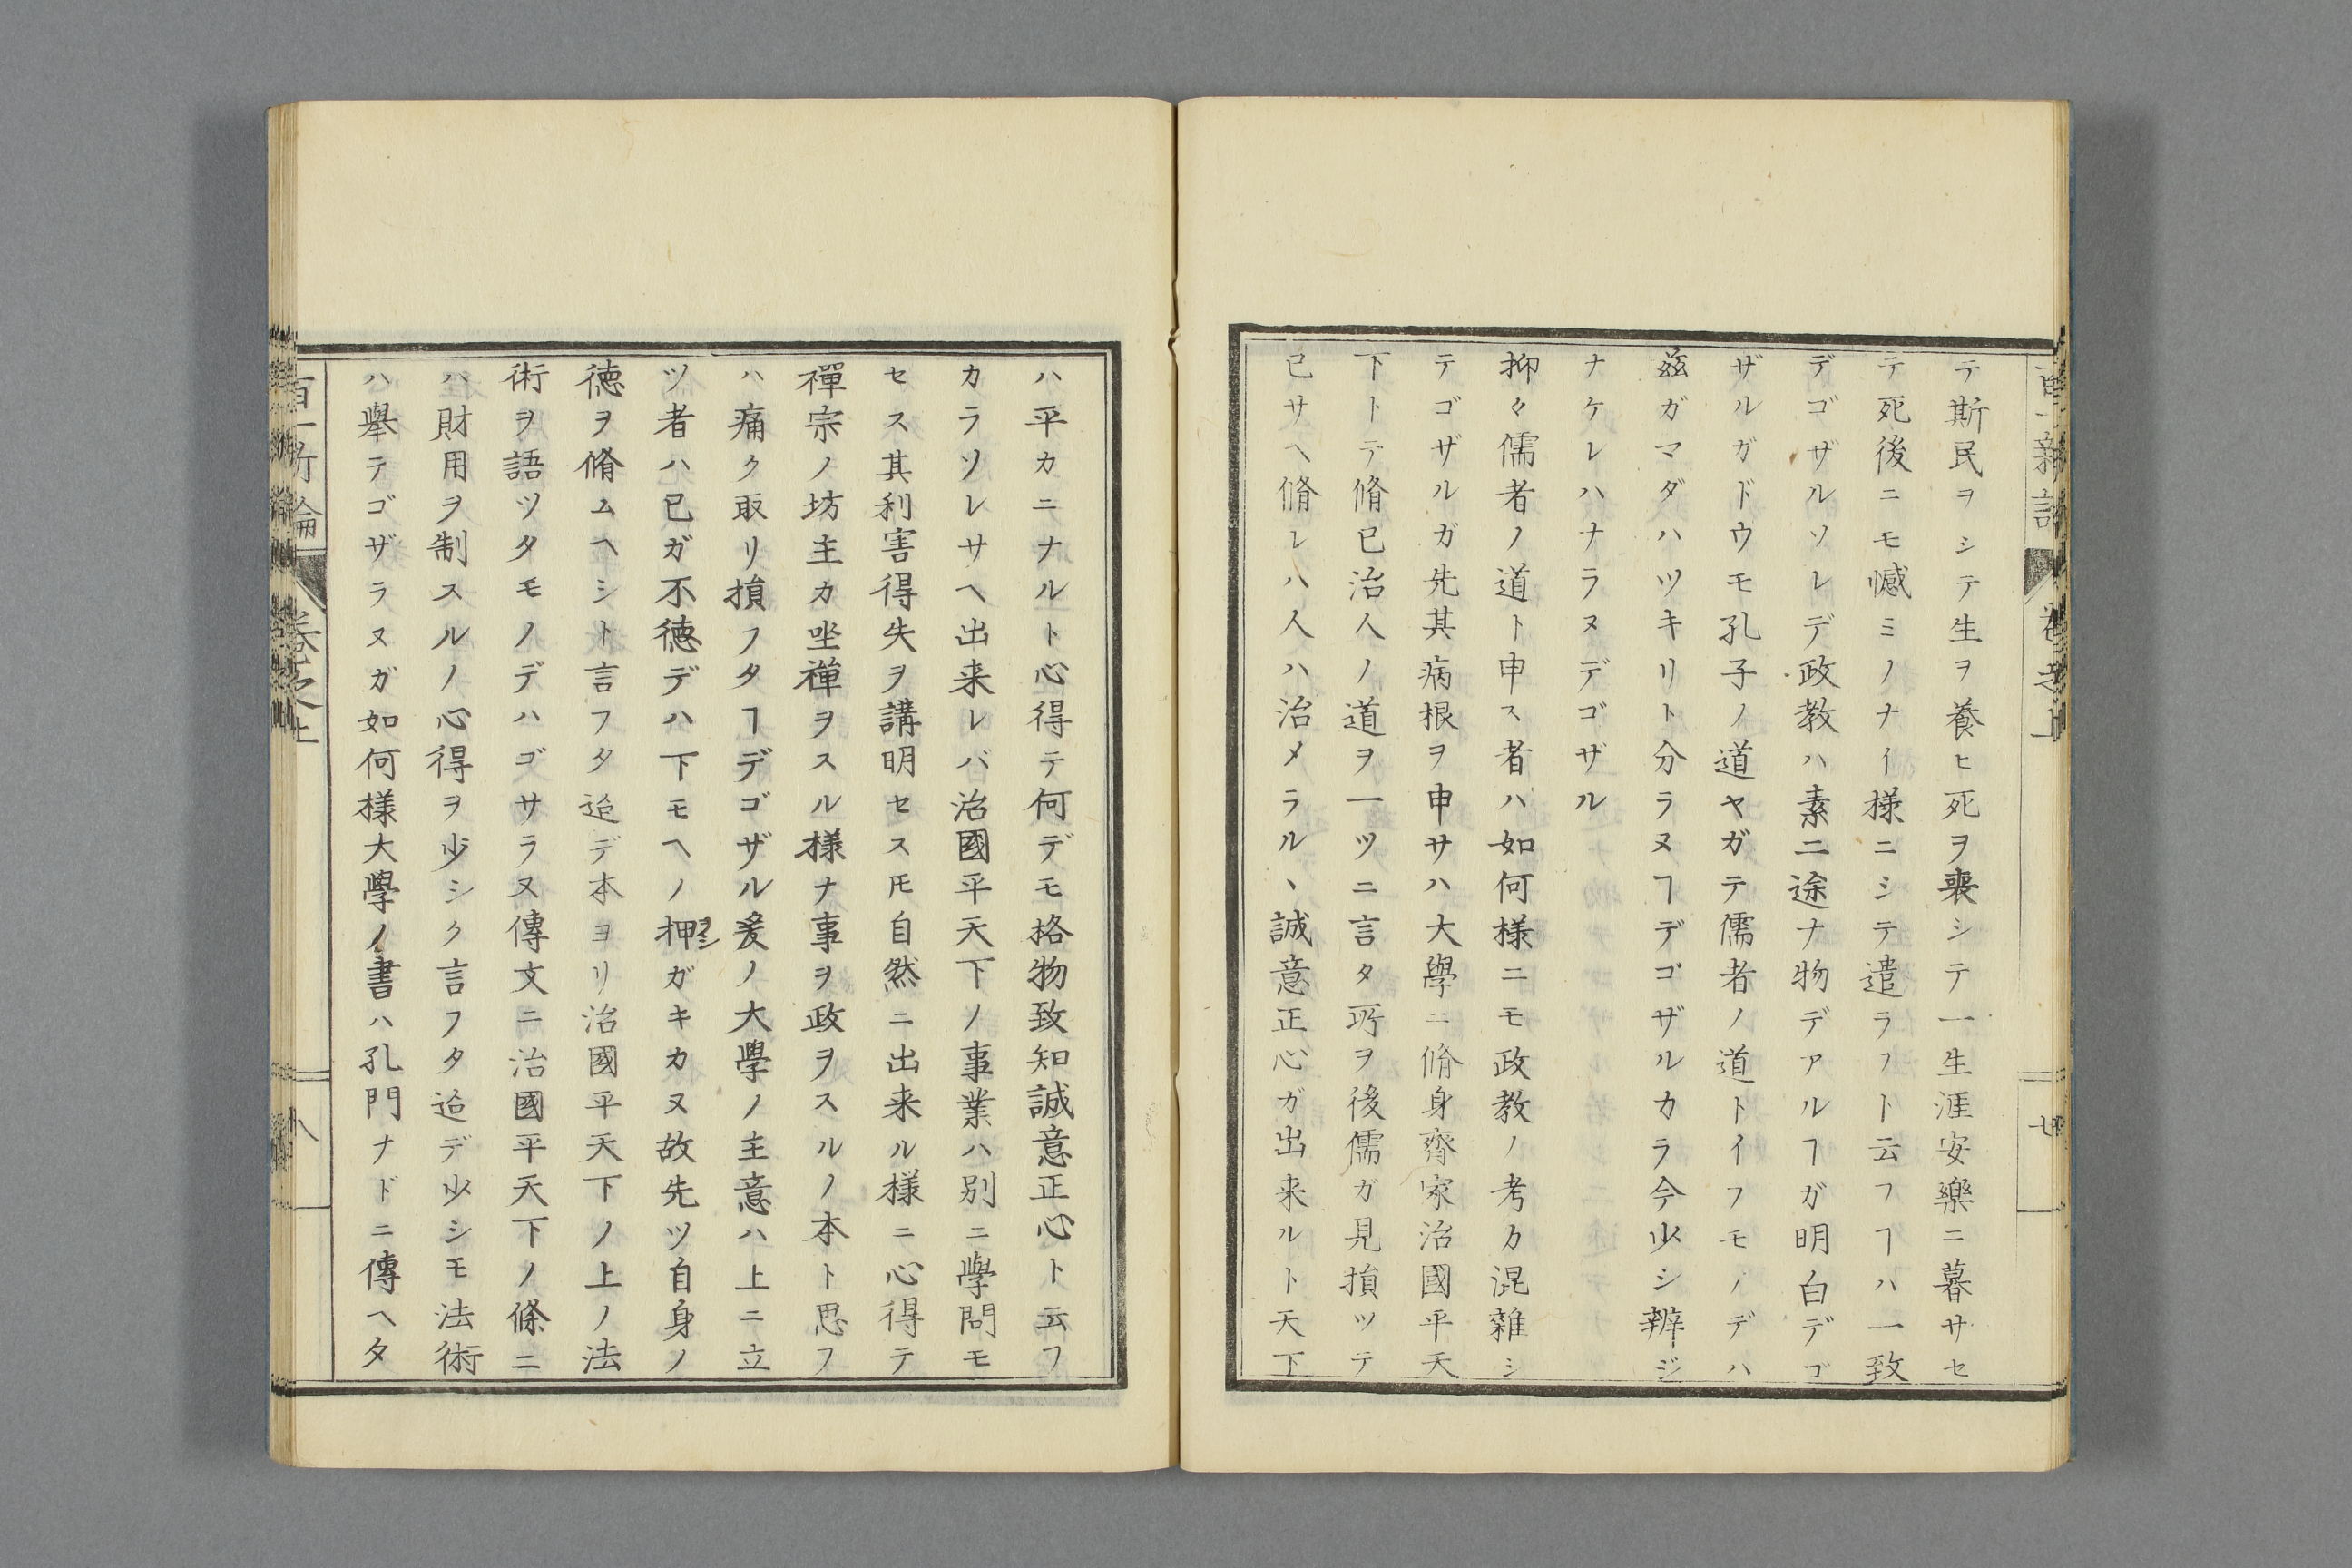 テ斯民ヲシテ生ヲ養ヒ死ヲ喪シテ一生涯安樂ニ暮サセ
テ死後ニモ憾ミノナイ様ニシテ遣ラフト云フヿハ一致
デゴザルソレデ政教ハ素二途ナ物デアルヿガ明白デゴ
ザルガドウモ孔子ノ道ヤガテ儒者ノ道トイフモノデハ
茲ガマダハツキリト分ラヌヿデゴザルカラ今少シ辨ジ
ナケレハナラヌデゴザル
抑々儒者ノ道ト申ス者ハ如何様ニモ政教ノ考カ混雜シ
テゴザルガ先其病根ヲ申サハ大學ニ脩身齊家治國平天
下トテ脩已治人ノ道ヲ一ツニ言タ所ヲ後儒ガ見損ツテ
已サヘ脩レハ人ハ治メラルヽ誠意正心ガ出来ルト天下
ハ平カニナルト心得テ何デモ格物致知誠意正心ト云フ
カラソレサヘ出来レバ治國平天下ノ事業ハ別ニ學問モ
セス其利害得失ヲ講明セス𪜈自然ニ出来ル様ニ心得テ
禪宗ノ坊主カ坐禪ヲスル様ナ事ヲ政ヲスルノ本ト思フ
ハ痛ク取リ損フタヿデゴザル爰ノ大學ノ主意ハ上ニ立
ツ者ハ已ガ不徳デハ下モヘノ押ヲシガキカヌ故先ツ自身ノ
徳ヲ脩ムヘシト言フタ迨デ本ヨリ治國平天下ノ上ノ法
術ヲ語ツタモノデハゴサラヌ傳文ニ治國平天下ノ條ニ
ハ財用ヲ制スルノ心得ヲ少シク言フタ迨デ少シモ法術
ハ擧テゴザラヌガ如何様大學ノ書ハ孔門ナドニ傳ヘタ
百一新論
卷之上
七
百一新論
卷之上
八